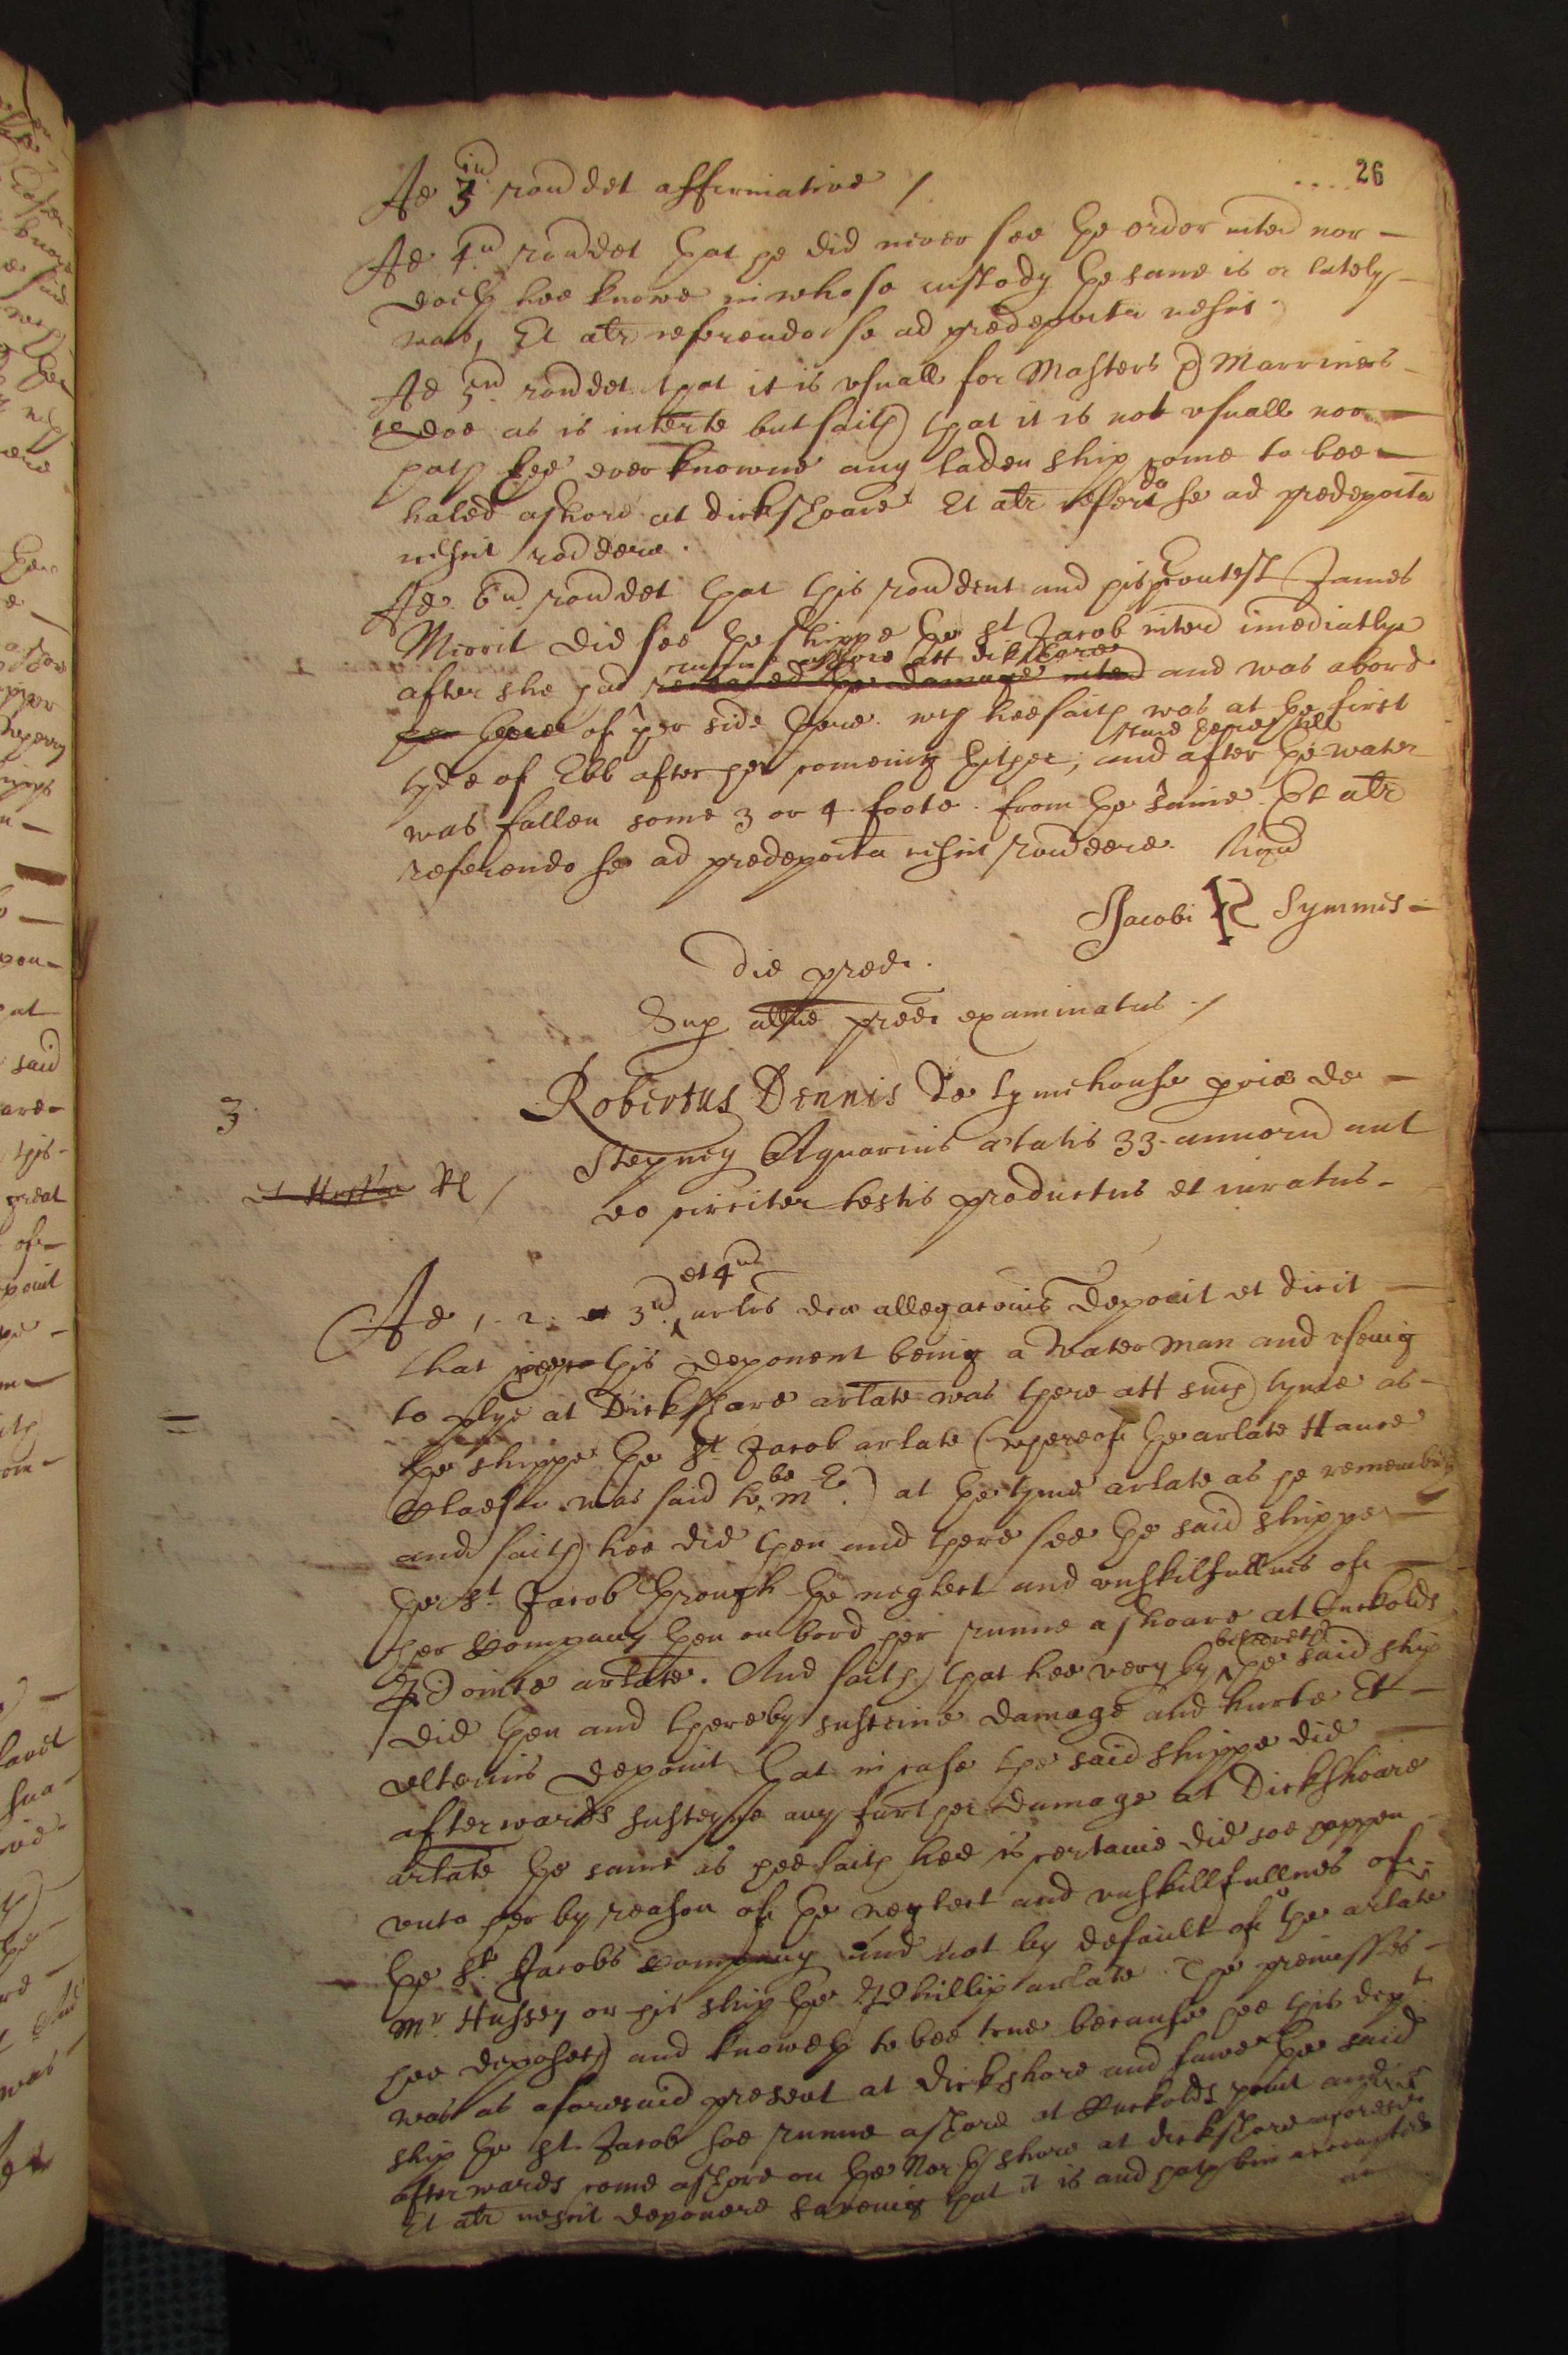 26
Ad 3um rondet affirmative /
Ad 4um rondet that he did never see the order interd nor
doeth hee knowe in whose custody the same is or lately
was, Et alr referendo se ad predeposita nescit.
Ad 5um rondet that it is usuall for Masters & Marriners
to doe as is interte but saith that it is not usuall nor
hath hee ever knowne any laden ship come to bee
haled ashore at dickshoare Et alr referendo se ad predeposita
nescit rondere.
Ad 6um rondet that this rondent and his contest James
Merrit did see the shippe the St Jacob interd imediatlye
after she had runne ashore att dickshore and was abord
of her side there. wch hee saith was at the first
tyde of Ebb after her comeing thither, and after the water
was fallen some 3 or 4 foote from the same. Et alr
referendo se ad predeposita nescit rondere. Signd
Jacobi Symmes
die pred.
Sup allne pred examinatus /
3
Robertus Dennis de Lymehouse poiæ de
Stepney Aquarius ætatis 33 annoru aut
Rl /
eo circiter testis productus et iuratus
Ad 1. 2. 3um et 4um arlos dcæ allegationis deponit et dicit
that this deponent being a Waterman and useing
to plye at Dickshore arlate was there att such tyme as
the shippe the St Jacob arlate (whereof the arlate Hance
Claesen was said to be Mr.) at the tyme arlate as he remembers
and saith hee did then and there see the said shippe
the St Jacob through the neglect and unskilfullnes of
her company then on bord her runne ashoare at Cuckolds
pointe arlate. And saith that hee veryly beleeveth the said ship
did then and thereby susteine damage and hurte Et
ulterius deponit that in case the said shippe did
afterwards susteyne any further damage at Dickshoare
arlate the same as hee saith hee is certaine did soe happen
unto her by reason of the neglect and unskillfullnes of
the St Jacobs company and not by default of the arlate
Mr Hussey or his ship the Phillip arlate. The premisses
hee deposeth and knoweth to bee true because hee this dept
was as aforesaid present at dickshore and sawe the said
ship the St Jacob soe runne ashore at Cuckolds point and
afterwards come ashore on the North shore at dickshore aforesaid
Et alr nescit deponere saveing that it is and hath bin accounted